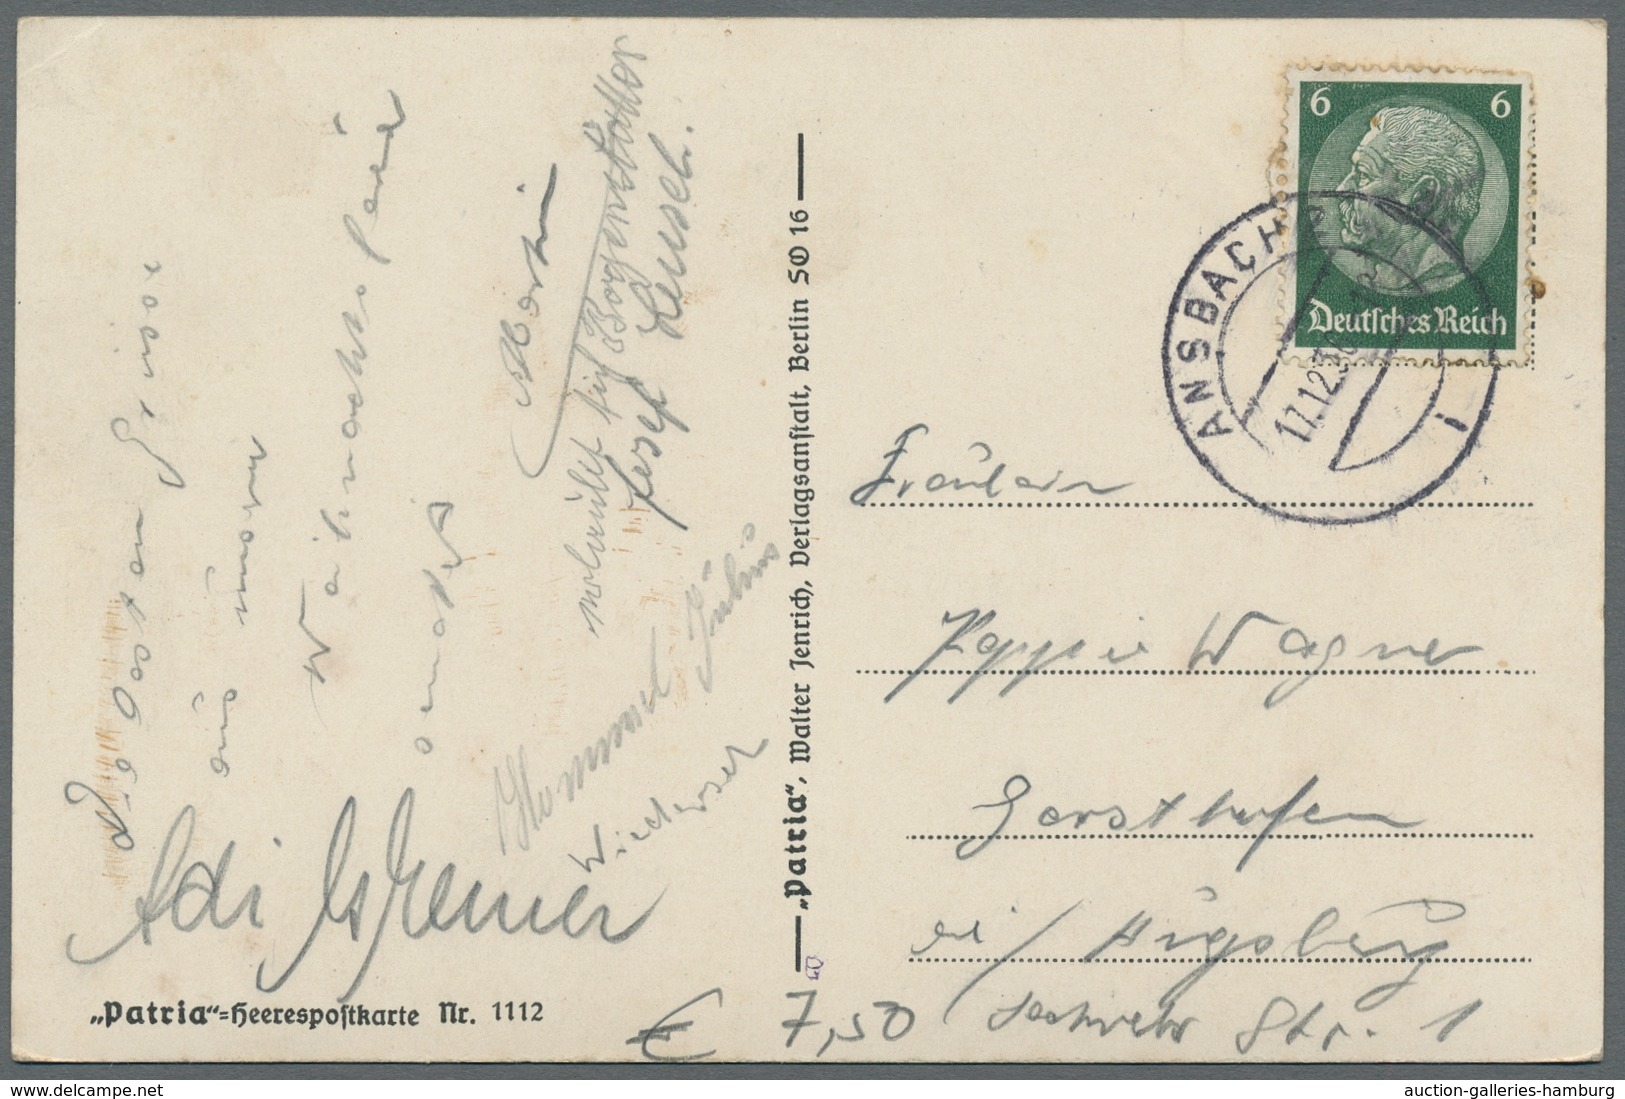 Die besten Grüsse
aus unserer
Weihnachtsfeier
sendet
Martin
Josef Leusch.
Hommel Julius
Adi Kremer
„Patria“=Heerespostkarte Nr. 1112
„Patria“, Walter Jenrich, Verlagsanstalt, Berlin SO 16
6 6
Deutsches Reich
ANSBACH
17.12.36
Fräulein
Wagner
Gersthofen
bei / Augsburg
Str. 1
€ 7,50
auction-galleries-hamburg